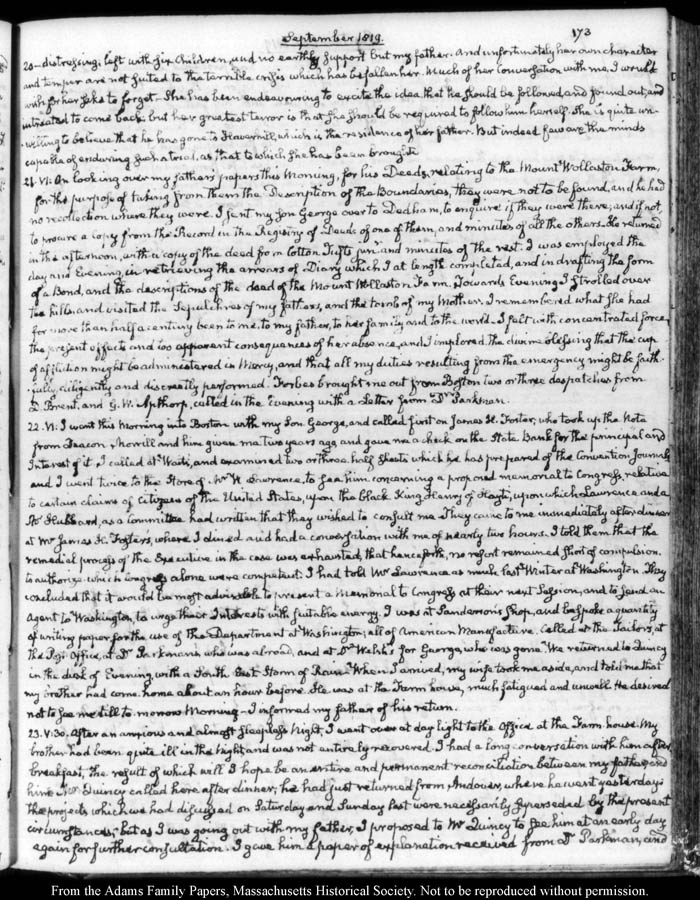 September 1819.
173
20—distressing; left with six Children, and no earthly support but my father. And unfortunately her own character
and temper are not suited to the terrible crisis which has befallen her. Much of her Conversation with me, I would
wish for her sake to forget—She has been endeavouring to excite the idea that he should be followed, and found out, and
intreated to come back: but her greatest terror is that she should be required to follow him herself. She is quite un-
willing to believe that he has gone to Haverhill, which is the residence of her father. But indeed few are the minds
capable of enduring such a trial, as that to which she has been brought.
21. VI: On looking over my father's papers this Morning, for his Deeds, relating to the Mount Wollaston Farm,
for the purpose of taking from them the Description of the Boundaries, they were not to be found, and he had
no recollection where they were. I sent my Son George over to Dedham, to enquire if they were there, and if not,
to procure a Copy from the Record in the Registry of Deeds of one of them, and minutes of all the others. He returned
in the afternoon, with a copy of the deed from Cotton Tufts junr. and minutes of the rest. I was employed the
day and Evening, in retrieving the arrears of Diary which I at length completed, and in drafting the form
of a Bond, and the descriptions of the deed of the Mount Wollaston Farm. Towards Evening I strolled over
the hills and visited the Sepulchres of my fathers, and the tomb of my Mother. I remembered what she had
for more than half a century been to me, to my father, to her family and to the world. I felt with concentrated force,
the present effects and too apparent consequences of her absence, and I implored the divine blessing that the cup
of affliction might be administered in Mercy, and that all my duties resulting from the emergency might be faith-
fully, diligently and discreetly performed. Forbes brought me out from Boston two or three despatches from
D. Brent, and G. W. Apthorp, called in the Evening with a Letter from Dr. Parkman.
22. VI: I went this Morning into Boston with my Son George, and called first on James H. Foster, who took up the Note
from Deacon Morrill and him given me two years ago, and gave me a check on the State Bank for the principal and
Interest of it. I called at Wait's, and examined two or three half sheets which he has prepared of the Convention Journals
and I went twice to the Store of Mr. W. Lawrence, to see him concerning a proposed memorial to Congress, relative
to certain claims of Citizens of the United States, upon the Black King Henry of Hayti; upon which Lawrence and a
Hubbard, as a Committee had written that they wished to consult me. They came to me immediately after dinner
at Mr. James H. Foster's, where I dined and had a conversation with me of nearly two hours. I told them that the
remedial process of the Executive in the case was exhausted, that henceforth, no resort remained short of compulsion.
to authorize which Congress alone were competent. I had told Mr. Lawrence as much last Winter at Washington. They
concluded that it would be most advisable to present a Memorial to Congress at their next Session, and to send an
Agent to Washington, to urge their Interests with suitable energy. I was at Sanderson's Shop, and bespoke a quantity
of writing paper for the use of the Department at Washington; all of American Manufacture. Called at the Tailor's, at
the Post-Office, at Dr. Parkman's who was abroad, and at Dr. Welsh's for George, who was gone. We returned to Quincy
in the dusk of Evening, with a South East Storm of Rain. When I arrived, my wife took me aside, and told me that
my brother had come home about an hour before. He was at the Farm house, much fatigued and unwell. He desired
not to see me till to morrow Morning—I informed my father of his return.
23. V:30. After an anxious and almost sleepless Night, I went over at day light to the Office at the Farm house. My
brother had been quite ill in the Night, and was not entirely recovered. I had a long conversation with him after
breakfast, the result of which will I hope be an entire and permanent reconciliation between my father and
him. Mr. Quincy called here after dinner; he had just returned from Andover, where he went yesterday;
the projects which we had discussed on Saturday and Sunday last were necessarily superseded by the present
circumstances; but as I was going out with my father, I proposed to Mr. Quincy to see him at an early day
again for further consultation. I gave him a paper of explanation received from Dr. Parkman, and
From the Adams Family Papers, Massachusetts Historical Society. Not to be reproduced without permission.